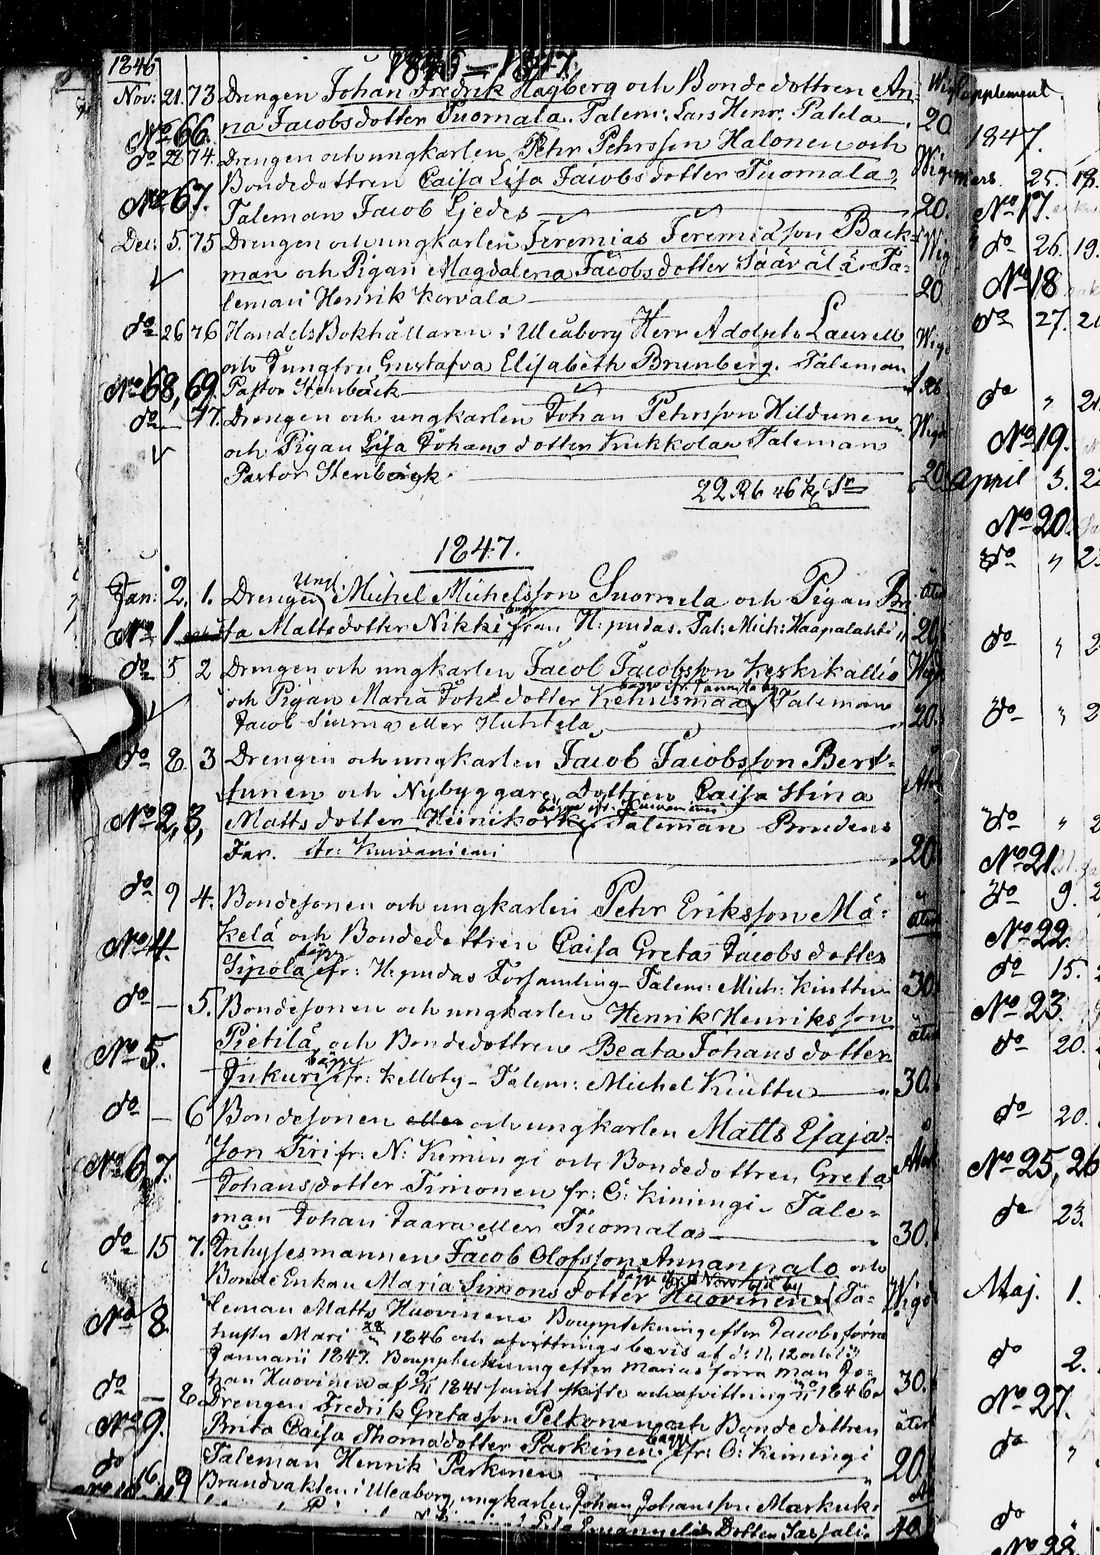 1846
1846 – 1847.
Nov: 21. 73 Drengen Johan Fredrik Hagberg och Bondedottren An- Wigd
No 66. na Jacobsdotter Tuomala. Talem: Lars Henr. Palola 20
do 28 74 Drengen och ungkarlen Pehr Pehrsson Halonen och Wigd
Bondedottren Caisa Lisa Jacobsdotter Tuomala,
No 67. Taleman Jacob Ljedes 20.
Dec: 5. 75 Drengen och ungkarlen Jeremias Jeremiasson Back- Wig
man och Pigan Magdalena Jacobsdotter Säävälä. Ta-
leman Henrik Korvala 20
do 26 76 Handels Bokhållaren i Uleåborg Herr Adolph Laurell Wigd
och Jungfru Gustafva Elisabeth Brunberg. Taleman
No 68, 69. Pastor Stenbäck
do — 77. Drengen och ungkarlen Johan Pehrsson Hildunen Wigd
och Pigan Lisa Johansdotter Kukkola Taleman
Pastor Stenbäck. 20
22 Rb 46 k Sr
1847.
Jan: 2. 1. Drengen Ungk. Michel Michelsson Suomela och Pigan Bri
No 1 ta Mattsdotter Nikki från H:pudas. Tal: Mich: Haapalahti 20
do 5 2 Drengen och ungkarlen Jacob Jacobsson Keskikallio Wigd
och Pigan Maria Joh: dotter Taleman
Jacob Siurna eller Huhtela 20.
do 8. 3 Drengen och ungkarlen Jacob Jacobsson Bert-
tunen och Nybyggare Dottren Caisa Stina
No 2, 3, Mattsdotter Heinikoski Taleman Brudens
Far. fr: Kuivaniemi 20
do 9 4. Bondesonen och ungkarlen Pehr Eriksson Mä-
No 4. kelä och Bondedottren Caisa Greta Jacobsdotter
Sipola fr: H:pudas Församling – Talem: Mich: Kiuttu 30.
do — 5. Bondesonen och ungkarlen Henrik Henriksson
No 5. Pietilä, och Bondedottren Beata Johansdotter
Jukuri fr: Kelloby – Talem: Michel Kiuttu 30.
do — 6 Bondesonen eller och ungkarlen Matts Esaja-
No 6, 7. son Kiri fr: N: Kiimingi och Bondedottren Greta
Johansdotter Timonen fr: Ö: Kiimingi. Tale-
man Johan Jaara eller Tuomala 30.
do 15 7. Inhysesmannen Jacob Olofsson Annanpalo och
Bonde Enkan Maria Simonsdotter Huovinen Ta- Wigd
No 8 leman Matts Huovinen Boupptekning efter Jacobs förra
hustru Mari 1846 och afvittrings bevis af d: 11, 12
Januarii 1847. Boupptekning efter Marias förra man Jo-
han Huovinen af 1841 samt skifte och afvittring 1846 30.
do — 8. Drengen Fredrik Gretasson Pelkonen och Bondedottren
No 9. Brita Caisa Thomasdotter Parkinen fr: Ö: Kiimingi
Taleman Henrik Parkinen 20.
do 16. 9 Brandvakten i Uleåborg, ungkarlen Johan Johansson Markuk
Lisa Emanuels Dotter 40
Supplement
1847.
Mars 25. 18.
No 17.
do 26. 19.
No 18
do 27.
do
No 19.
April 3. 22
No 20.
do
do
do
do
No 21.
do 9.
No 22
do 15.
No 23.
do 20.
do 20.
No 25, 26
do 23.
Maj. 1.
do 2.
No 27.
do
do
No 28.